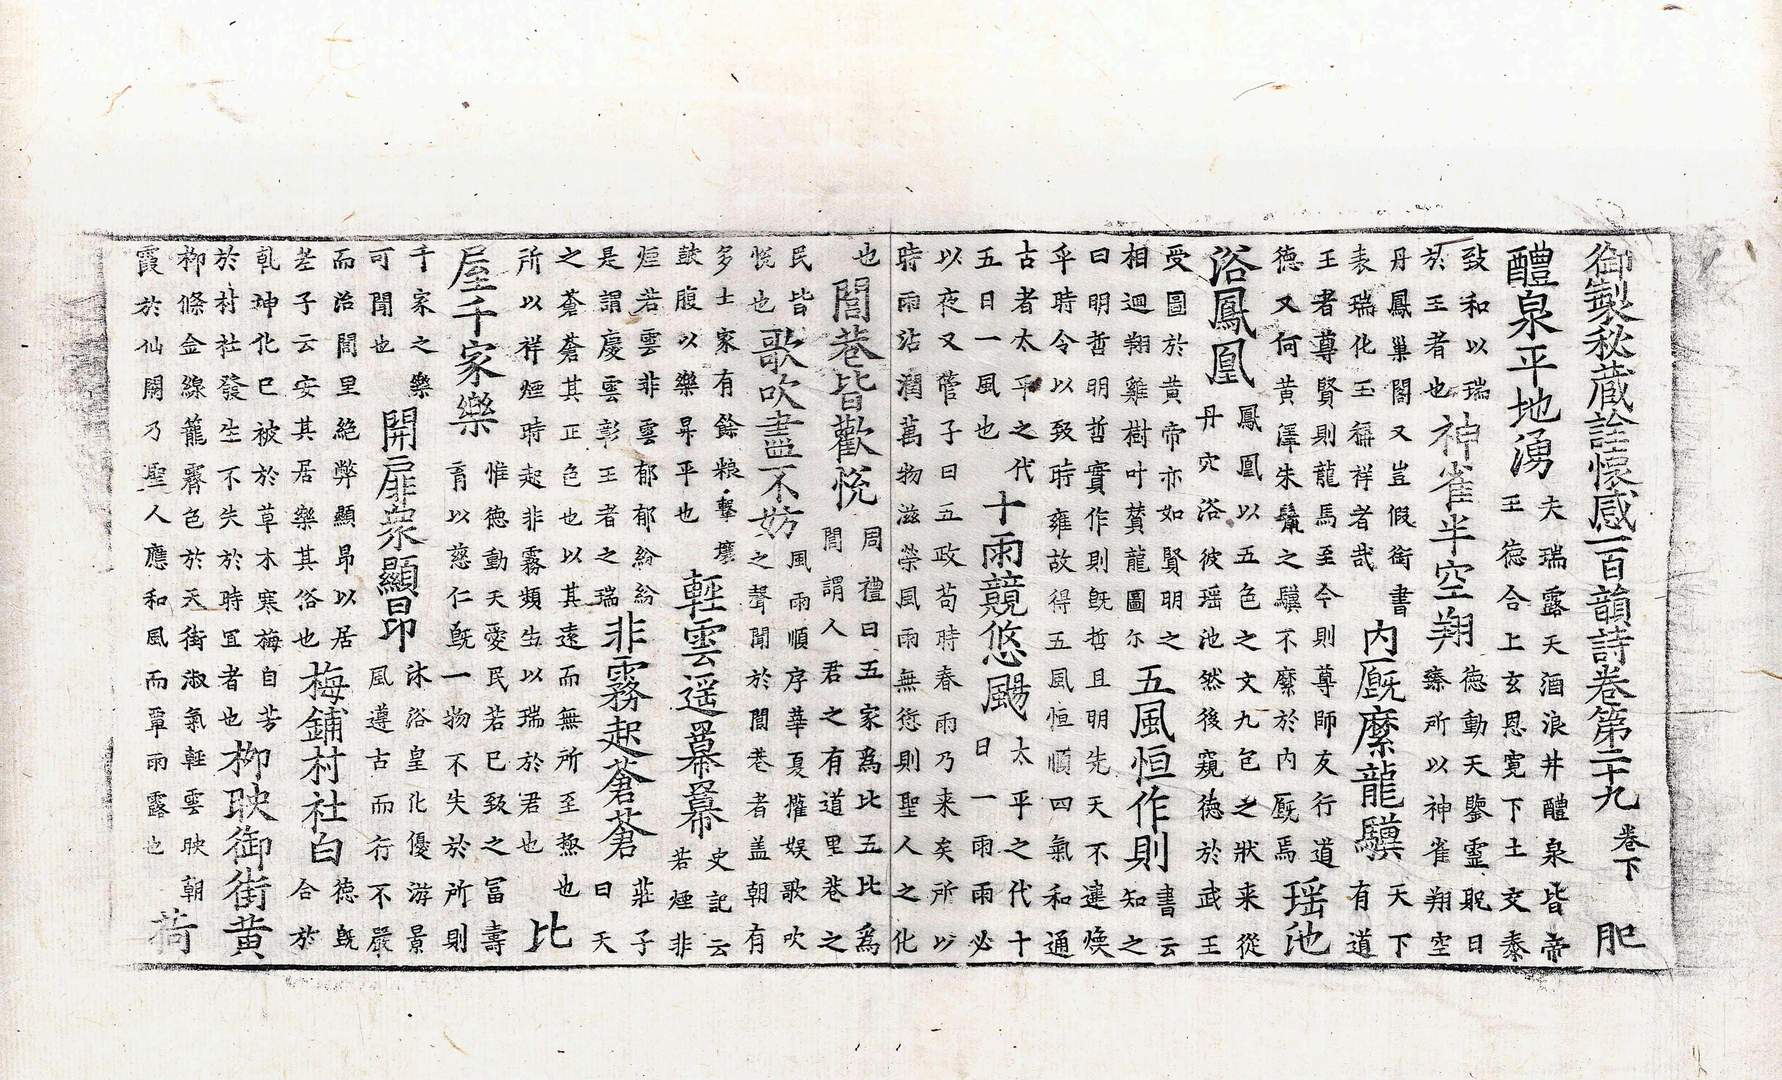 御製秋蔵詮懷感一百韻詩卷第二十九 卷下 肥
醴泉平地湧 夫瑞露天酒浪井醴泉皆帝王德合上玄恩寛下土交泰
致和以瑞於王者也 神雀半空翔 德動天鑒靈貺日臻所以神雀翔空
丹鳳巢閣又豈假銜書表瑞化王稱祥者哉 內廐縻龍驥 天下有道
王者尊賢則龍馬至今則尊師友行道德又何黄澤朱鬣之驥不縻於內廐焉 瑶池
浴鳳凰 鳳凰以五色之文九包之狀来從丹穴浴彼瑶池然後窺德於武王
受圖於黄帝亦如賢明之相迴翔雞樹叶賛龍圖尓 五風恒作則 書云知之
曰明哲明哲實作則旣哲且明先天不違煥乎時令以致時雍故得五風恒順四氣和通
古者太平之代五日一風也 十雨競悠颺 太平之代十日一雨雨必
以夜又管子曰五政苟時春雨乃来矣所以時雨沾潤萬物滋榮風雨無愆則聖人之化
也 閭巷皆歡悦 周禮曰五家爲比五比爲閭謂人君之有道里巷之
民皆悦也 歌吹盡不妨 風雨順序華夏懽娱歌吹之聲聞於閭巷者盖朝有
多士家有餘粮擊壤鼓腹以樂昇平也 輕雲遥羃羃 史記云若煙非
烟若雲非雲郁郁紛紛是謂慶雲彰王者之瑞 非霧起蒼蒼 莊子曰天
之蒼蒼其正色也以其遠而無所至極也所以祥煙時起非霧頻生以瑞於君也 比
屋千家樂 惟德動天愛民若巳致之冨壽育以慈仁旣一物不失於所則
千家之樂可聞也 開扉衆顯昂 沐浴皇化優游景風遵古而行不嚴
而治閭里絶弊顯昂以居荖子云安其居樂其俗也 梅鋪村社白 德旣合於
乹坤化巳被於草木寒梅自芳於村社發生不失於時冝者也 柳映御街黄
柳條金線籠霽色於天街淑氣輕雲映朝霞於仙闕乃聖人應和風而覃雨露也 荷